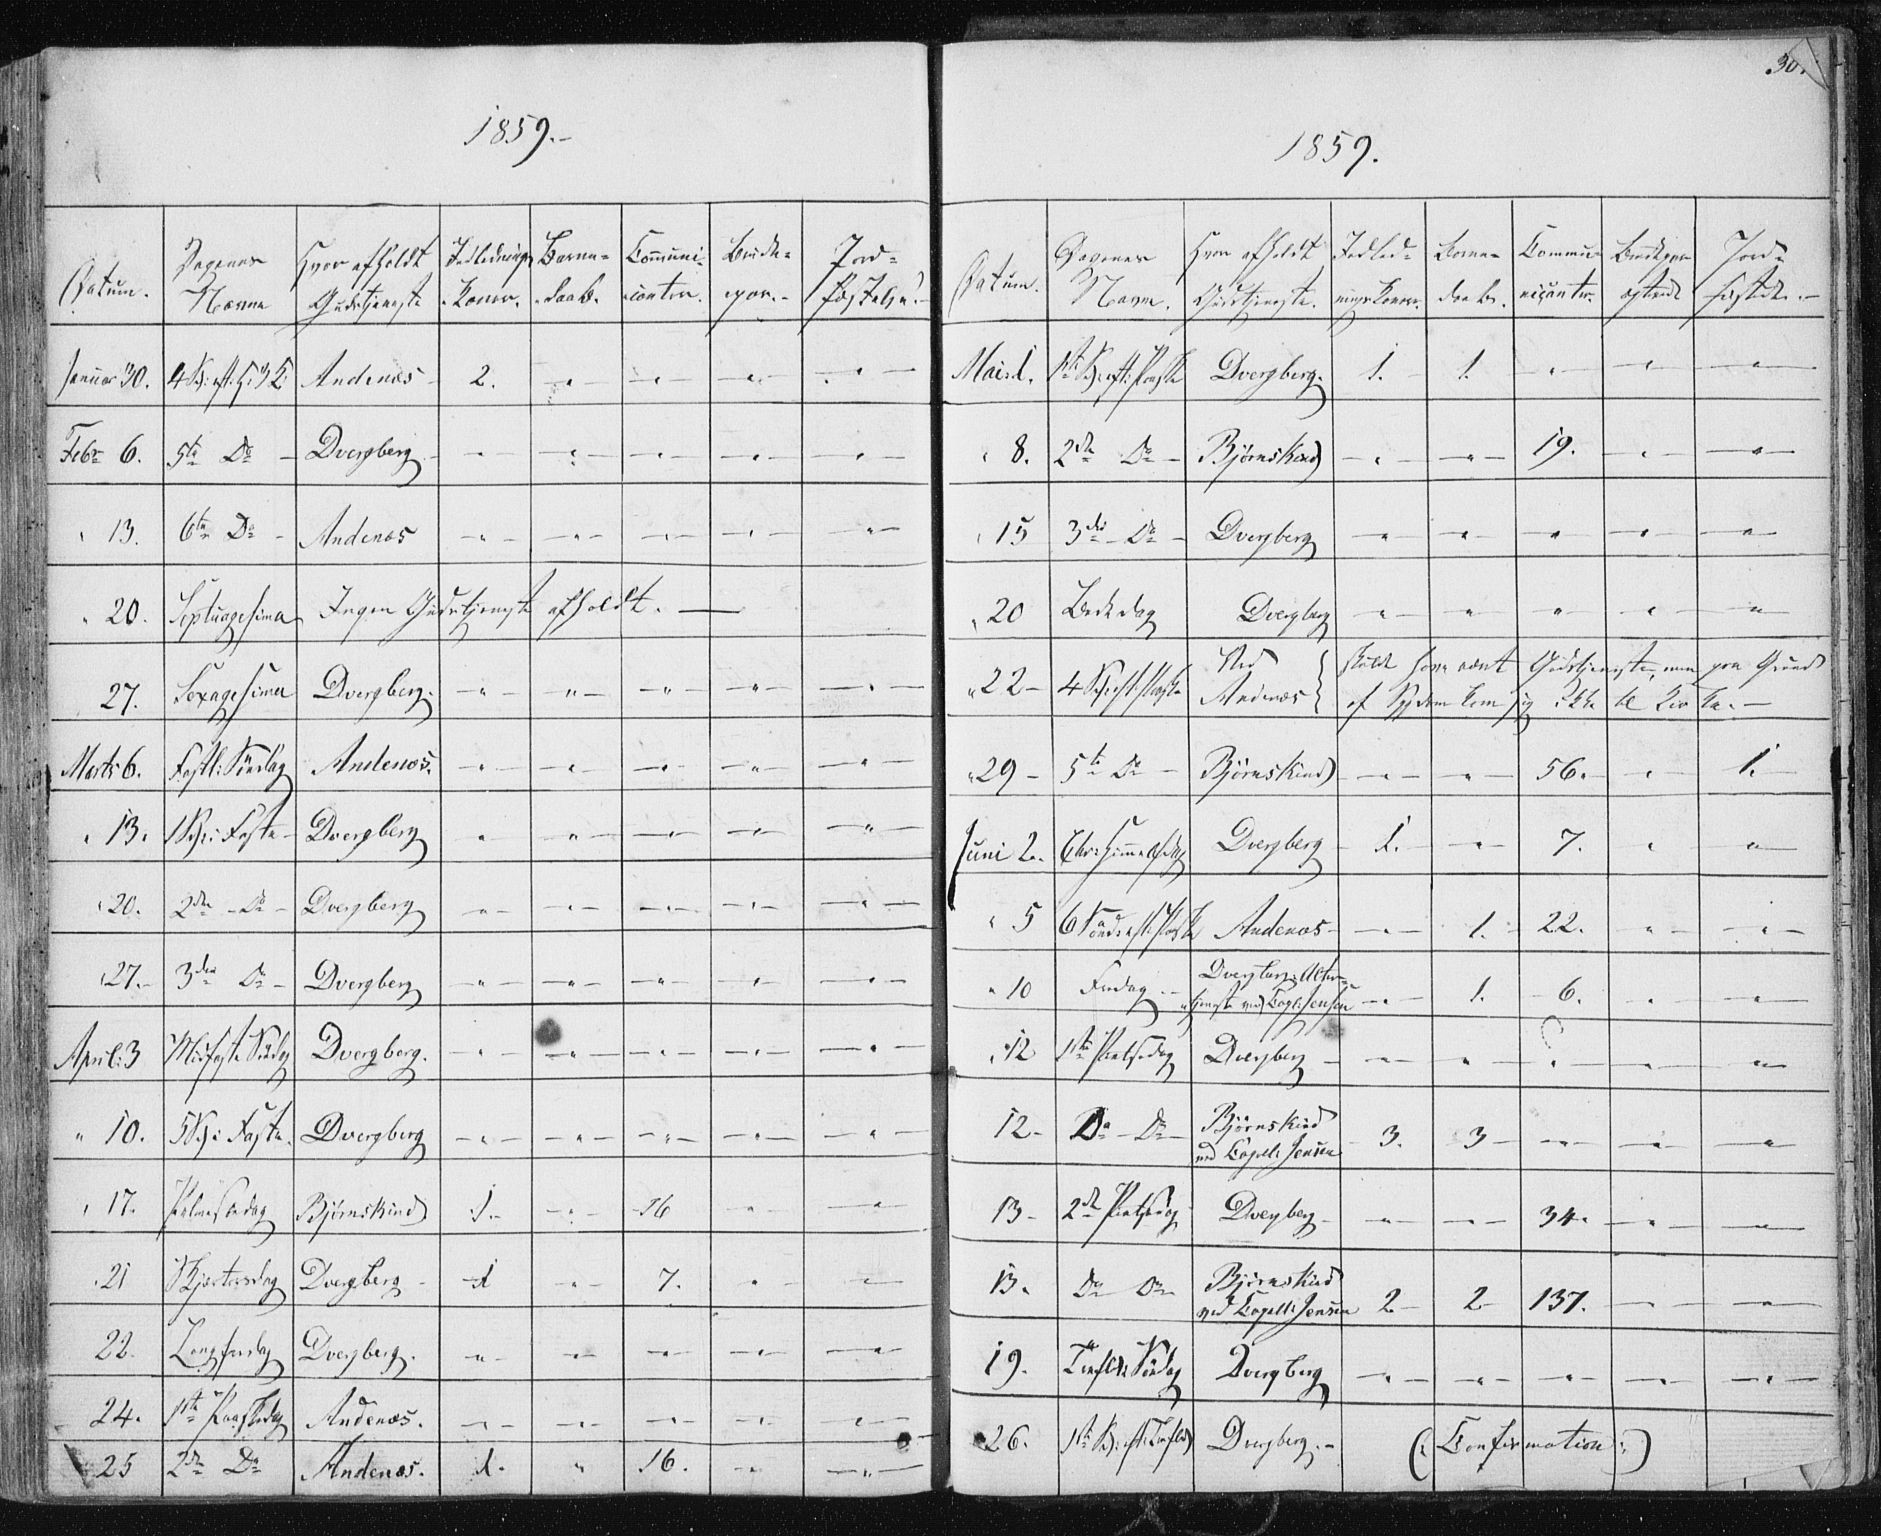 1859.-
Datum. Dagenes Navne Hvor afholdt Gudstjeneste Indlednings Koner. Barne-daab. Communi-canter. Brude-par.- Jord-fæstelse.-
Januar 30. 4 S: eft: H: 3 K: Andenæs - 2. " " " "
Febr 6. 5te Do - Dverberg - " " " " "
" 13. 6te Do - Andenæs " " " " "
" 20. Septuagesima Ingen Gudstjeneste afholdt. —
27. Sexagesima Dverberg. " " " " "
Marts 6. Fastl: Søndag Andenæs. " " " " "
" 13. 1 S: i Faste - Dverberg " " " " "
" 20. 2den Do - Dverberg " " " " "
" 27. 3die Do - Dverberg " " " " "
April: 3 Midfaste Søndag Dverberg. " " " " "
" 10. 5 S: i Faste. Dverberg " " " " "
" 17. Palmesøndag Bjørnskind 1. " 16 " "
" 21 Skjertorsdag Dverberg - 1 " 7. " "
22. Langfredag Dverberg. " " " " "
24. 1ste Paaskedag Andenæs. " " " " "
25 2den Do Andenæs. 1. " 16. " "
30.
1859.
Datum. Dagenes Navne. Hvor afholdt Gudstjeneste. Indled-nings Koner. Barne-daab. Commu-nicanter. Brudepar Jord-fæstede.-
Mai 1. 1ste S: eft: Paaske Dverberg. 1. 1. " " "
" 8. 2den Do - Bjørnskind " " 19. " "
" 15 3die Do - Dverberg " " " " "
" 20 Bededag Dverberg " " " " "
" 22 - 4 S: eft: Paaske Ved Andenæs } skulde have været Gudstjeneste, men paa Grund
af Sygdom kom jeg ikke til Kirke. -
" 29 - 5te Do - Bjørnskind " " 56. " 1.
Juni 2. Chr: Himmelf: dag Dverberg 1. " 7. " "
" 5 6 Sønd: eft: Paaske Andenæs - " 1. 22. " "
" 10 Fredag - Dverberg: Alter-
tjeneste ved Capl: Jensen " 1. 6. " "
" 12 1ste Pintsedag Dverberg - " " " " "
12 - Do - Do - Bjørnskind
ved Capell: Jensen 3. 3 " " "
13 - 2den Pintsedag Dverberg - " " 34. " "
13. Do Do Bjørnskind
ved Capell: Jensen 2 2 137. " "
19. Trefold: Søndag Dverberg " " " " "
26. 1ste S: eft: Trefold Dverberg. - (: Confirmation :)